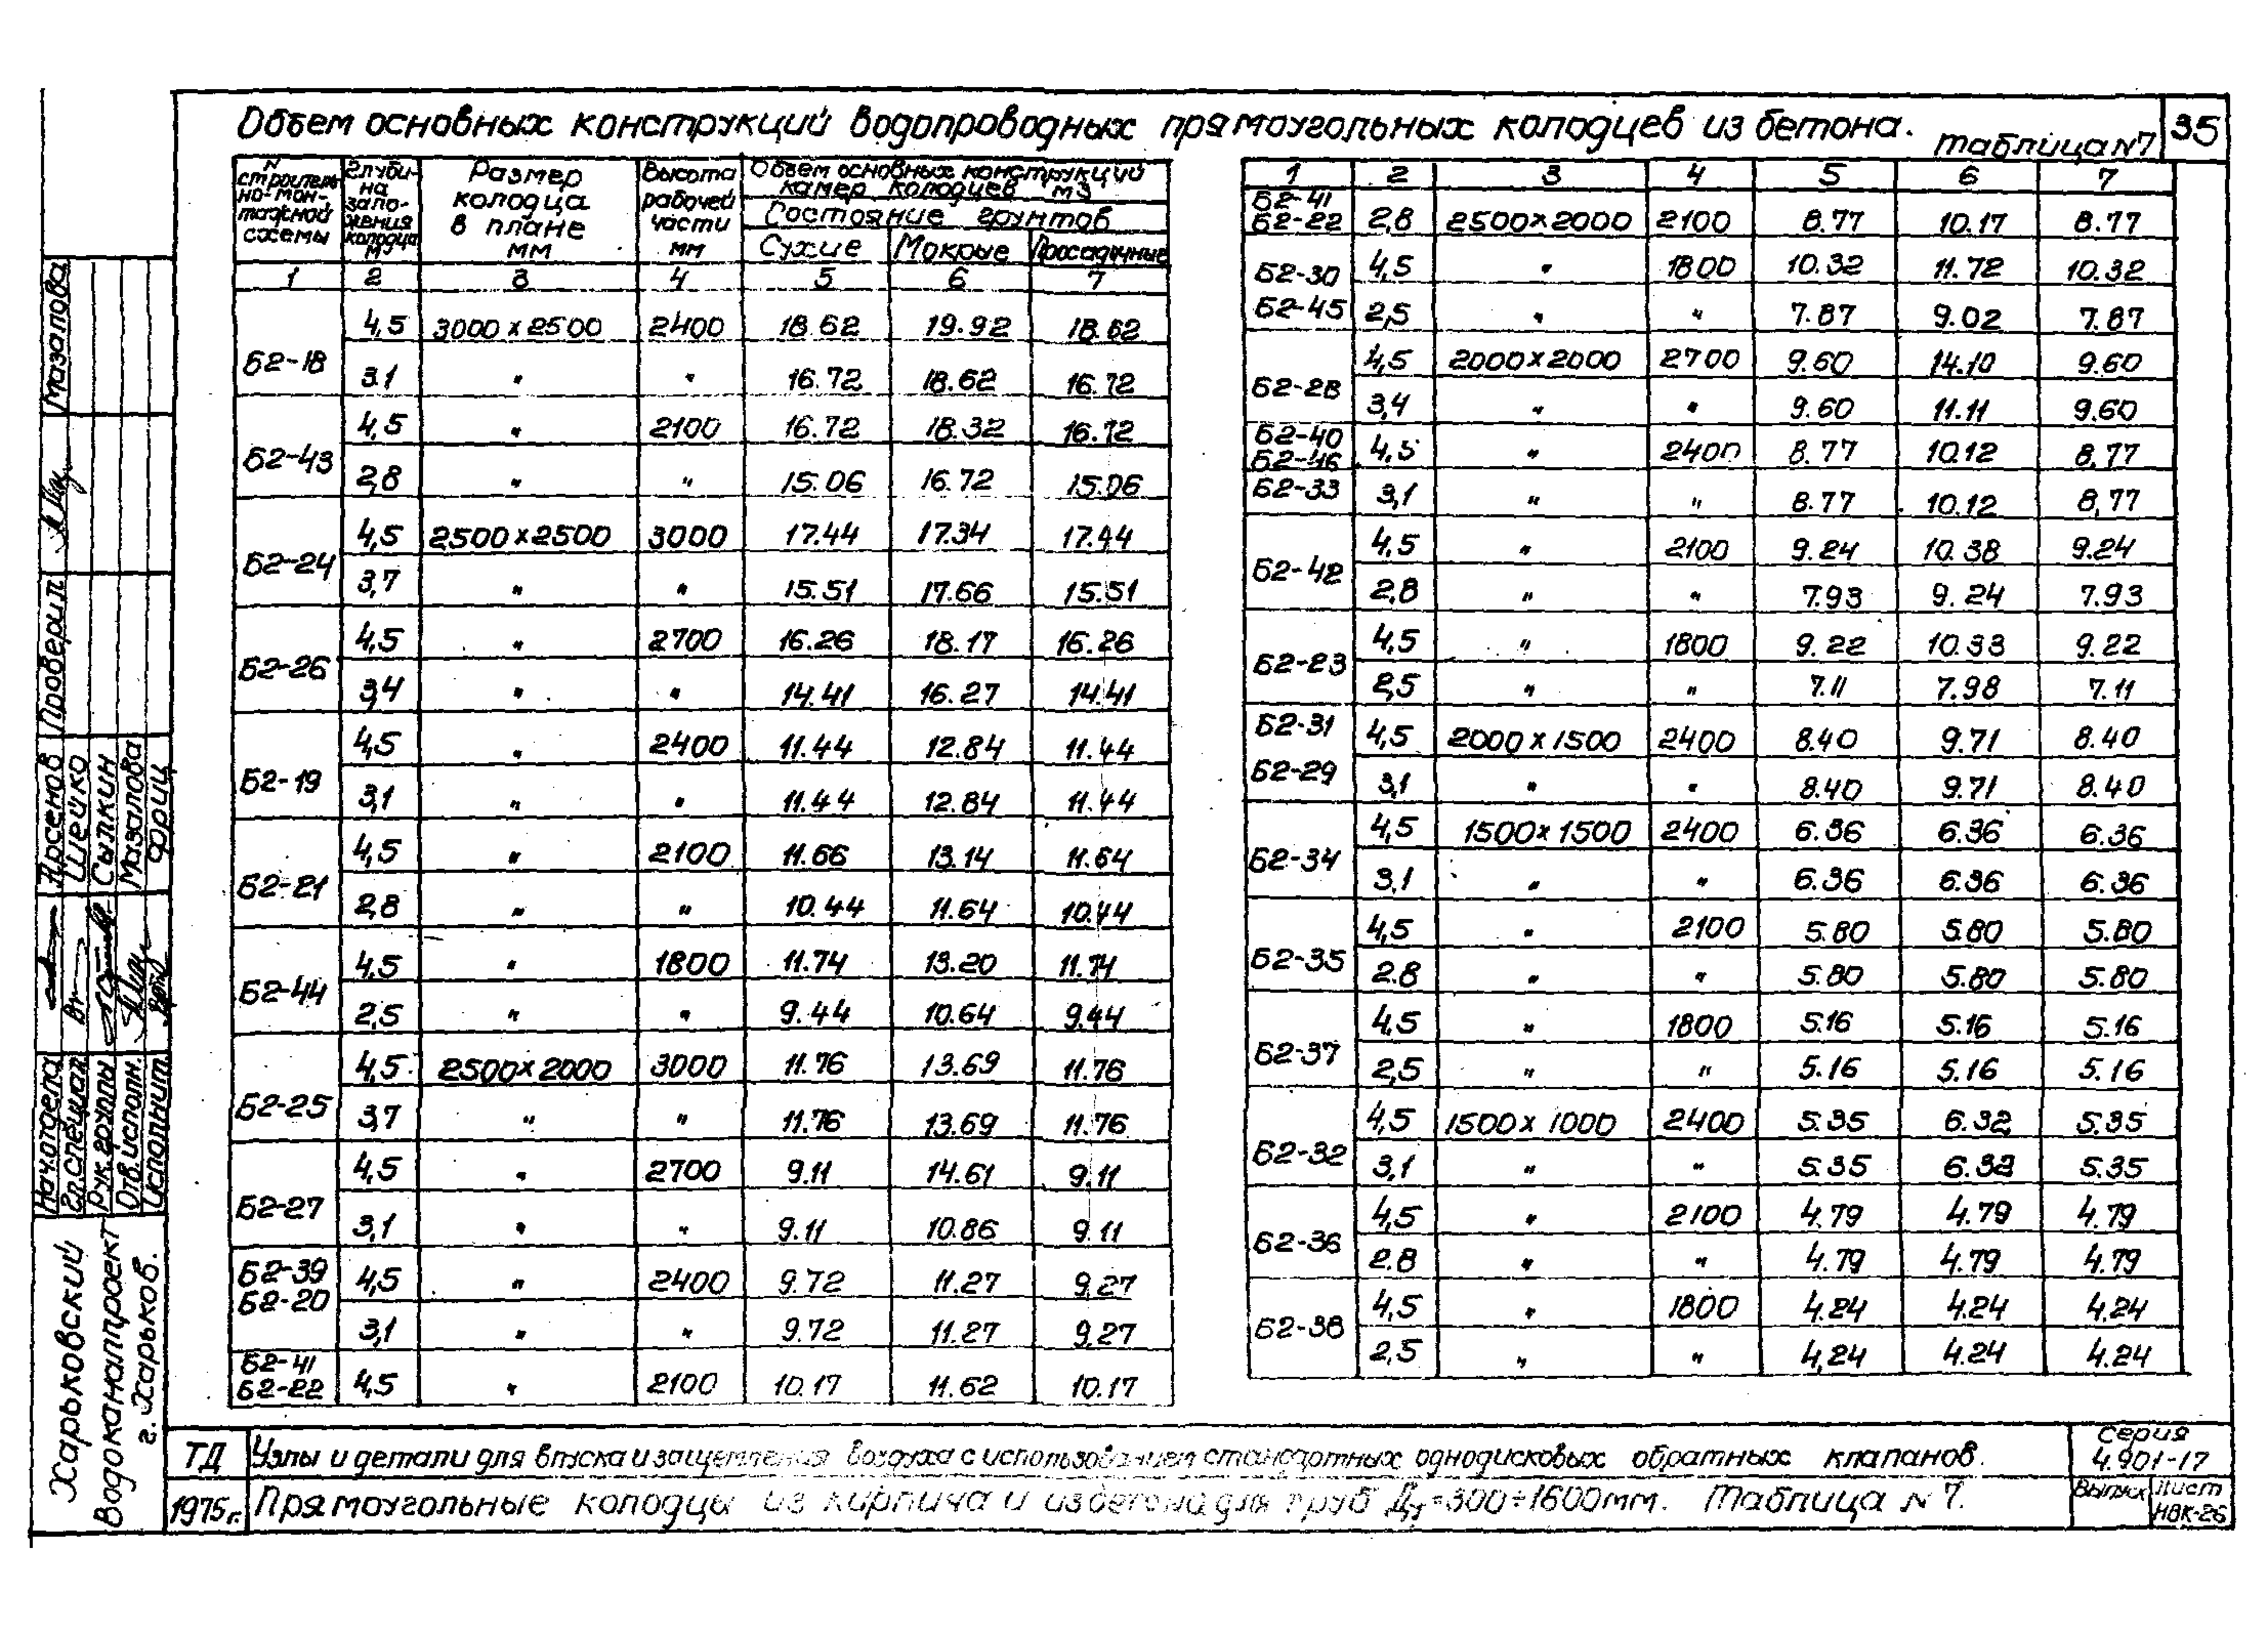 Объем основных конструкций водопроводных прямоугольных колодцев из бетона.
таблица N7
35
N строитель-но-мон-тажной схемы | Глуби-на зало-жения колодца м | Размер колодца в плане мм | Высота рабочей части мм | Объем основных конструкций камер колодцев м3
Состояние грунтов
Сухие | Мокрые | Просадочные
1 2 3 4 5 6 7
Б2-18 4,5 3000 x 2500 2400 18.62 19.92 18.62
3.1 " " 16.72 18.62 16.72
Б2-43 4,5 " 2100 16.72 18.32 16.72
2,8 " " 15.06 16.72 15.06
Б2-24 4,5 2500 x 2500 3000 17.44 17.34 17.44
3,7 " " 15.51 17.66 15.51
Б2-26 4,5 " 2700 16.26 18.17 16.26
3,4 " " 14.41 16.27 14.41
Б2-19 4,5 " 2400 11.44 12.84 11.44
3,1 " " 11.44 12.84 11.44
Б2-21 4,5 " 2100 11.66 13.14 11.64
2,8 " " 10.44 11.64 10.44
Б2-44 4,5 " 1800 11.74 13.20 11.74
2,5 " " 9.44 10.64 9.44
Б2-25 4,5 2500 x 2000 3000 11.76 13.69 11.76
3,7 " " 11.76 13.69 11.76
Б2-27 4,5 " 2700 9.11 14.61 9.11
3,1 " " 9.11 10.86 9.11
Б2-39 Б2-20 4,5 " 2400 9.72 11.27 9,27
3,1 " " 9.72 11.27 9.27
Б2-41 Б2-22 4,5 " 2100 10.17 11.62 10.17
1 2 3 4 5 6 7
Б2-41 Б2-22 2,8 2500 x 2000 2100 8.77 10.17 8.77
Б2-30 4,5 " 1800 10.32 11.72 10.32
Б2-45 2,5 " " 7.87 9.02 7.87
Б2-28 4,5 2000 x 2000 2700 9.60 14.10 9.60
3,4 " " 9.60 11.11 9.60
Б2-40 Б2-46 4,5 " 2400 8.77 10.12 8,77
Б2-33 3,1 " " 8.77 10.12 8,77
Б2-42 4,5 " 2100 9.24 10.38 9.24
2,8 " " 7.93 9.24 7.93
Б2-23 4,5 " 1800 9.22 10.33 9.22
2,5 " " 7.11 7.98 7.11
Б2-31 4,5 2000 x 1500 2400 8.40 9.71 8.40
Б2-29 3,1 " " 8.40 9.71 8.40
Б2-34 4,5 1500 x 1500 2400 6.36 6.36 6.36
3,1 " " 6.36 6.36 6.36
Б2-35 4,5 " 2100 5.80 5.80 5.80
2.8 " " 5.80 5.80 5.80
Б2-37 4,5 " 1800 5.16 5.16 5.16
2,5 " " 5.16 5.16 5.16
Б2-32 4,5 1500 x 1000 2400 5.35 6.32 5.35
3,1 " " 5.35 6.32 5.35
Б2-36 4,5 " 2100 4.79 4.79 4.79
2.8 " " 4.79 4.79 4.79
Б2-38 4,5 " 1800 4.24 4.24 4.24
2,5 " " 4,24 4.24 4.24
Мазалова
Проверил
Арсенов
Шейко
Сылкин
Мазалова
Фриц
Нач.отдела
Гл.специал
Рук.группы
Отв.исполн.
Исполнит.
Харьковский
Водоканалпроект
г. Харьков.
ТД
1975г.
Узлы и детали для впуска и защемления воздуха с использованием стандартных однодисковых обратных клапанов.
Прямоугольные колодцы из кирпича и из бетона для труб Ду=300÷1600мм. Таблица N 7.
серия
4.901-17
Выпуск
Лист
НВК-26